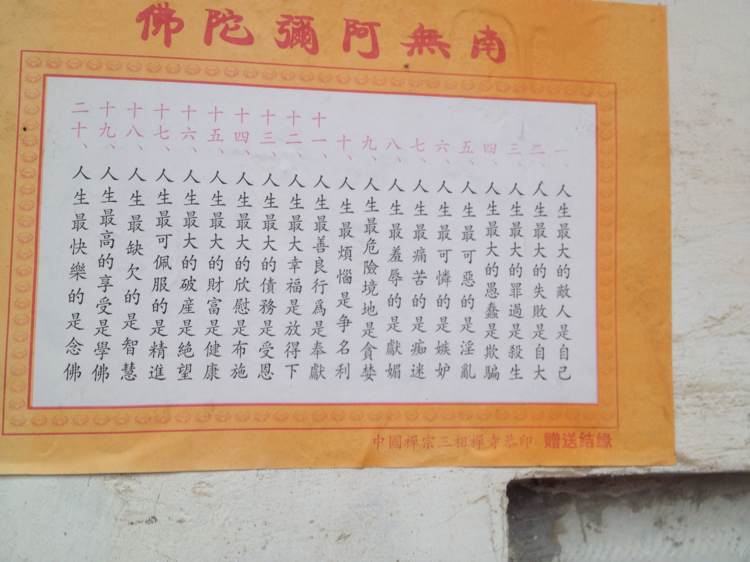 南無阿彌陀佛
一、人生最大的敵人是自己
二、人生最大的失敗是自大
三、人生最大的罪過是殺生
四、人生最大的愚蠢是欺騙
五、人生最可惡的是淫亂
六、人生最可憐的是嫉妒
七、人生最痛苦的是痴迷
八、人生最羞辱的是獻媚
九、人生最危險境地是貪婪
十、人生最煩惱是爭名利
十一、人生最善良行爲是奉獻
十二、人生最大幸福是放得下
十三、人生最大的債務是受恩
十四、人生最大的欣慰是布施
十五、人生最大的財富是健康
十六、人生最大的破産是絶望
十七、人生最可佩服的是精進
十八、人生最缺欠的是智慧
十九、人生最高的享受是學佛
二十、人生最快樂的是念佛
中國禪宗三祖禪寺恭印 赠送结缘